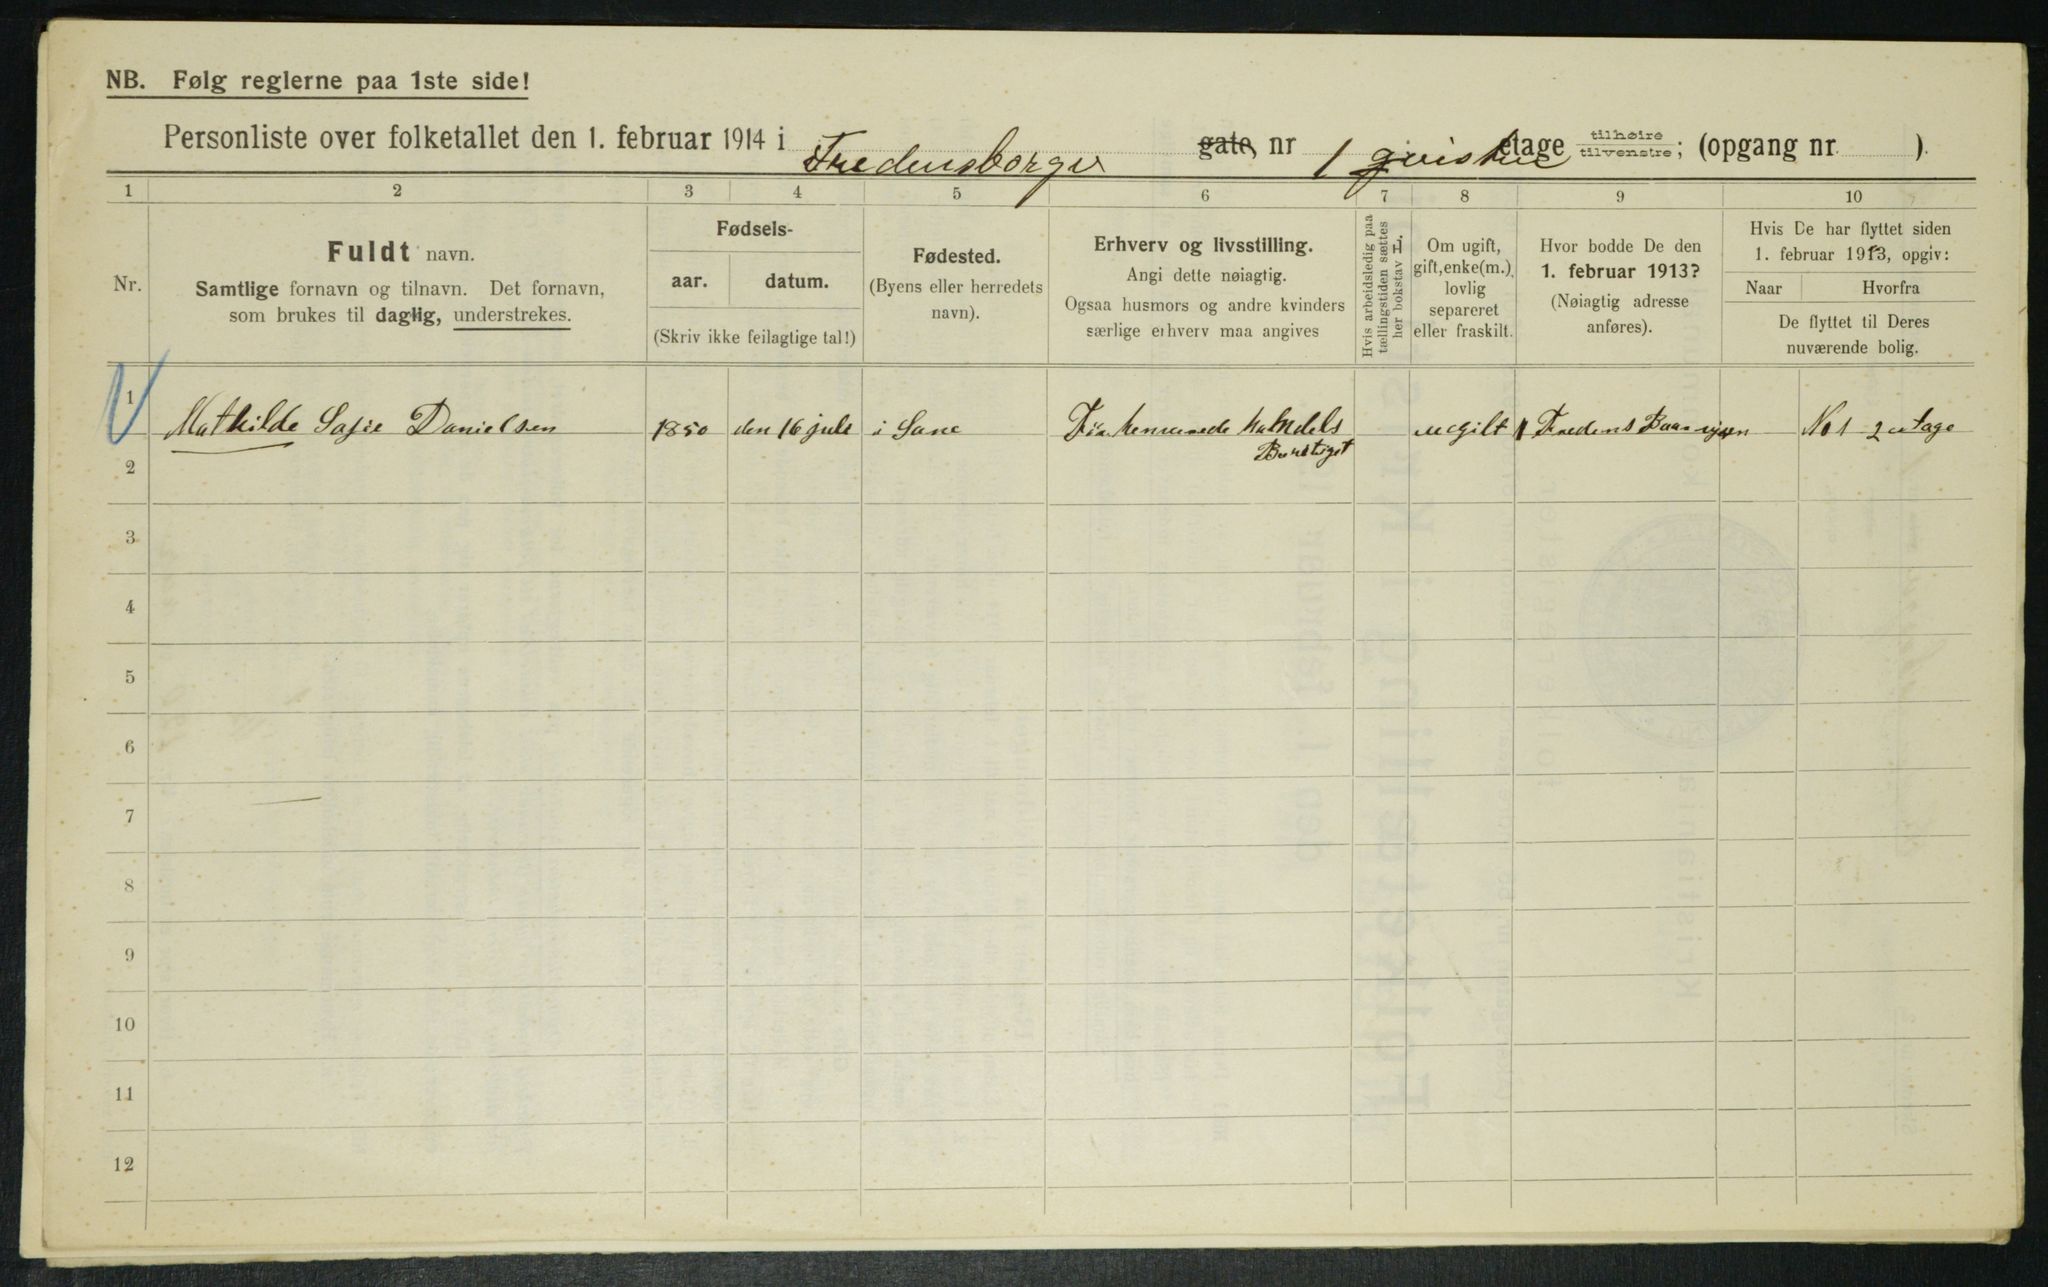 NB. Følg reglerne paa 1ste side!
Personliste over folketallet den 1. februar 1914 i Fredensborgv gate, nr 1 etage tilhøire tilvenstre; (opgang nr ).
1 2 3 4 5 6 7 8 9 10
Nr.
Fuldt navn.
Samtlige fornavn og tilnavn. Det fornavn,
som brukes til daglig, understrekes.
Fødsels-
aar. datum.
(Skriv ikke feilagtige tal!)
Fødested.
(Byens eller herredets
navn).
Erhverv og livsstilling.
Angi dette nøiagtig.
Ogsaa husmors og andre kvinders
særlige erhverv maa angives
Hvis arbeidsledig paa
tællingstiden sættes
her bokstav L.
Om ugift,
gift, enke(m.),
lovlig
separeret
eller fraskilt.
Hvor bodde De den
1. februar 1913?
(Nøiagtig adresse
anføres).
Hvis De har flyttet siden
1. februar 1913, opgiv:
Naar Hvorfra
De flyttet til Deres
nuværende bolig.
1 Mathilde Sofie Danielsen 1850 den 16 juli i ugift No 1 2 etage
2
3
4
5
6
7
8
9
10
11
12